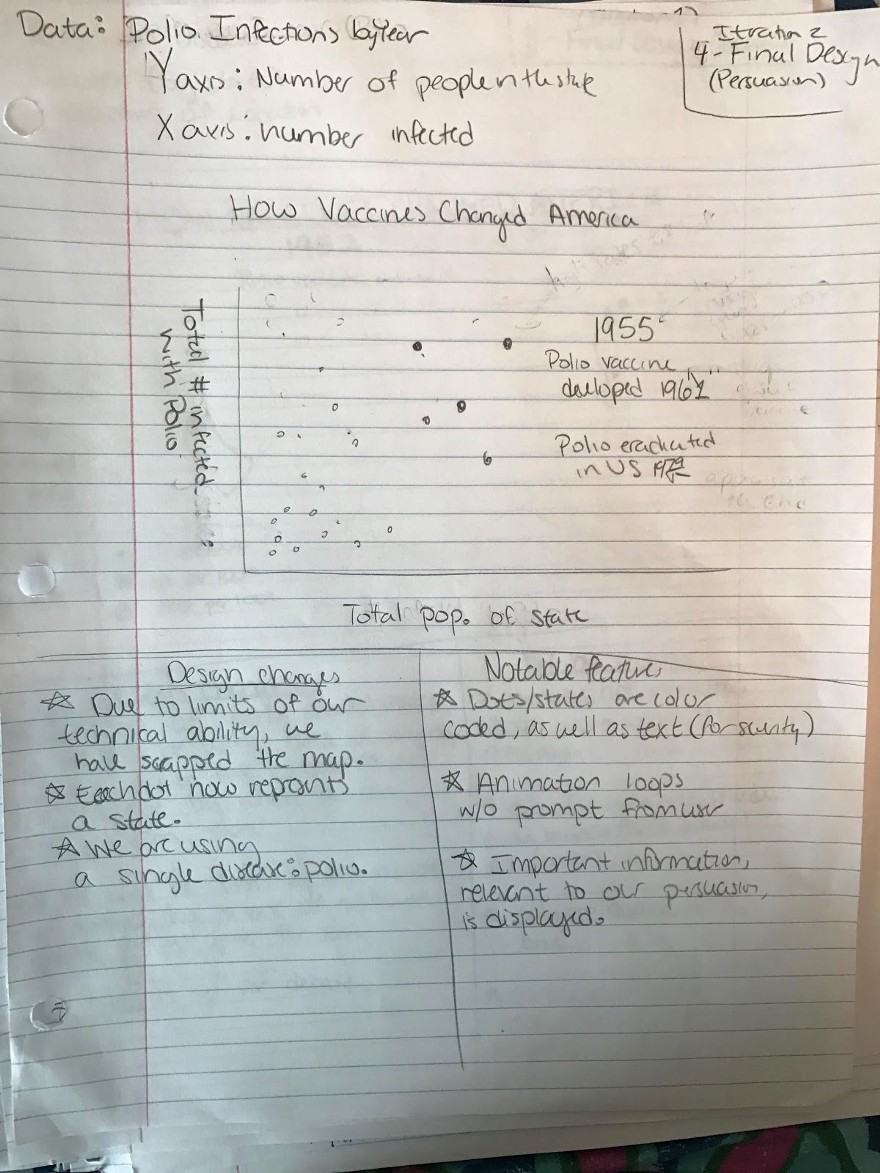 Data: Polio Infections by Year
Y axis: Number of people in the state
X axis: number infected
Itration 2
4-Final Design
(Persuasion)
How Vaccines Changed America
Total # infected
with Polio
1955
Polio vaccine
developed 1961
Polio eradicated
in US 1979
Total pop. of state
Design changes
☆ Due to limits of our
technical ability, we
have scapped the map.
☆ Each dot now reprsnts
a state.
☆ We are using
a single disease: polio.
Notable features
☆ Dots/states are color
coded, as well as text (for
☆ Animation loops
w/o prompt from user
☆ Important information,
relevant to our persuasion,
is displayed.